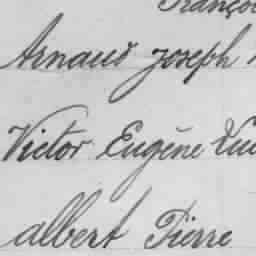 Arnaud Joseph
Victor Eugène
albert Pierre